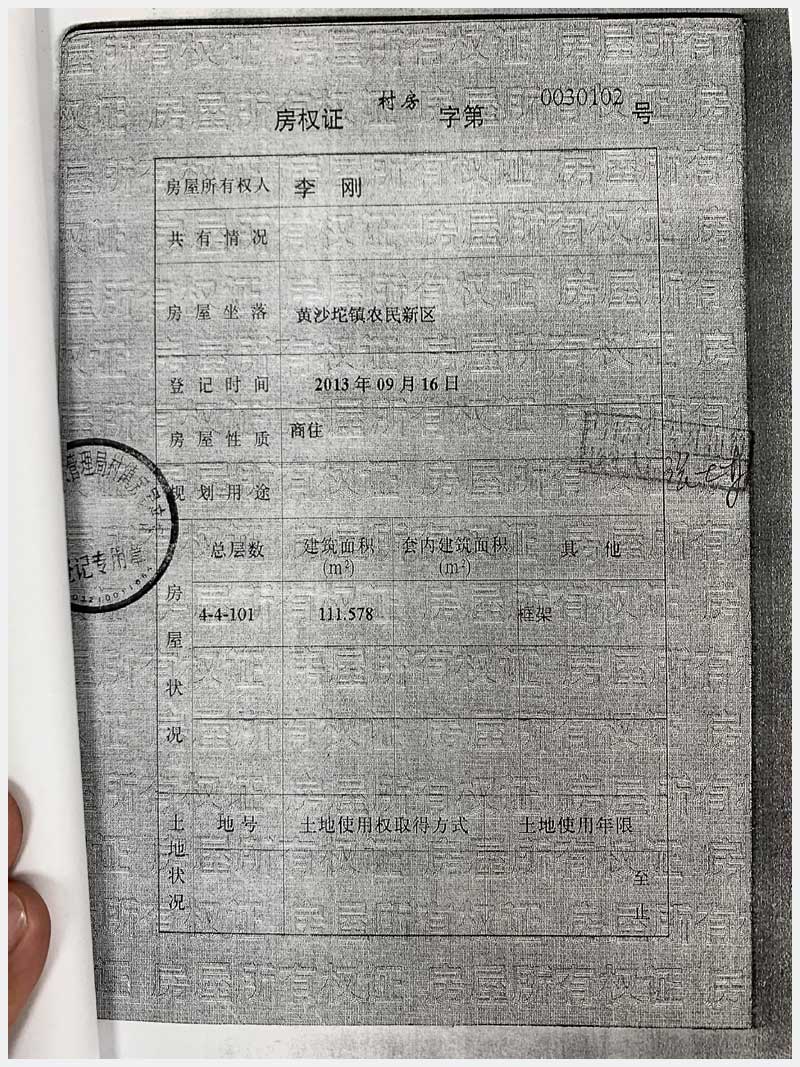 房权证 村房 字第 0030102 号
房屋所有权人 李刚
共有情况
房屋坐落 黄沙坨镇农民新区
登记时间 2013年09月16日
房屋性质 商住
规划用途
房屋状况
总层数 建筑面积(m²) 套内建筑面积(m²) 其他
4-4-101 111.578 框架
土地状况
地号 土地使用权取得方式 土地使用年限
至
止
管理局村镇房
登记专用章